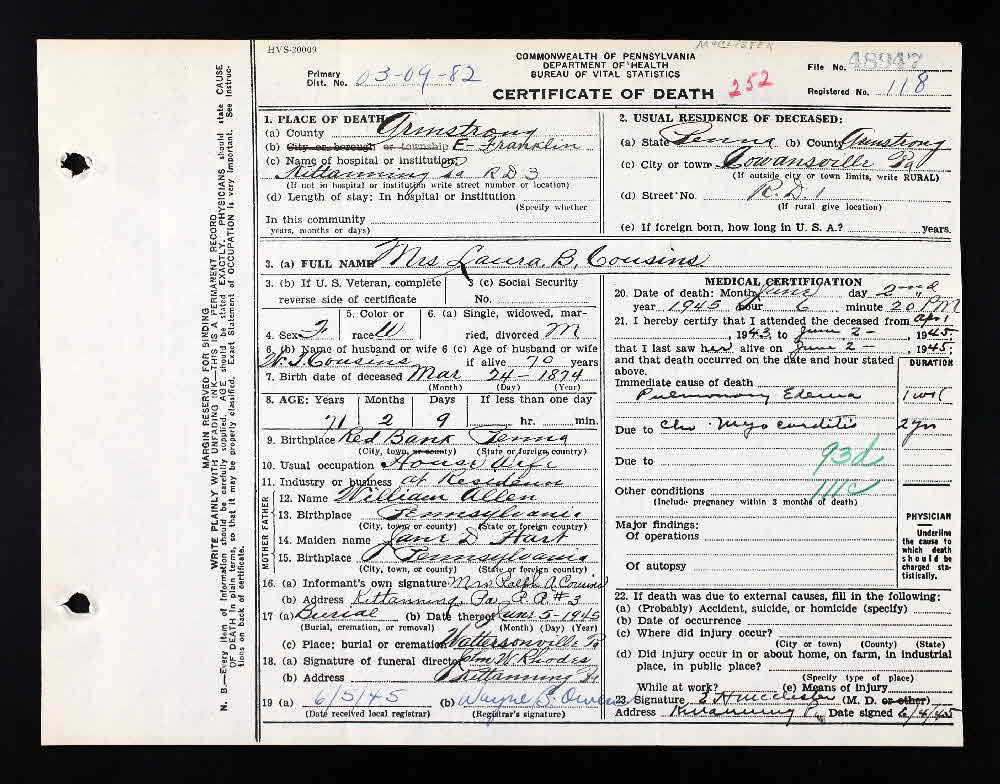 McCLISTER
HVS-20009
COMMONWEALTH OF PENNSYLVANIA
DEPARTMENT OF HEALTH
BUREAU OF VITAL STATISTICS
CERTIFICATE OF DEATH
252
Primary Dist. No. 03-09-82
File No. 48947
Registered No. 118
N. B.—Every item of Information should be carefully supplied. AGE should be stated EXACTLY. PHYSICIANS should state CAUSE
OF DEATH in plain terms, so that it may be properly classified. Exact Statement of OCCUPATION is very important. See Instruc-
tions on back of certificate.
WRITE PLAINLY WITH UNFADING INK—THIS IS A PERMANENT RECORD
MARGIN RESERVED FOR BINDING
1. PLACE OF DEATH
(a) County Armstrong
(b) City or borough or township E-Franklin
(c) Name of hospital or institution:
Kittanning Pa RD3
(If not in hospital or institution write street number or location)
(d) Length of stay: In hospital or institution
(Specify whether
In this community
years, months or days)
2. USUAL RESIDENCE OF DECEASED:
(a) State Penna (b) County Armstrong
(c) City or town Cowansville Pa
(If outside city or town limits, write RURAL)
(d) Street No. R.D. 1
(If rural give location)
(e) If foreign born, how long in U. S. A.? years.
3. (a) FULL NAME Mrs Laura B. Cousins
3. (b) If U. S. Veteran, complete
reverse side of certificate
3 (c) Social Security
No.
4. Sex F
5. Color or
race W
6. (a) Single, widowed, mar-
ried, divorced M
6. (b) Name of husband or wife
W. J. Cousins
6 (c) Age of husband or wife
if alive 70 years
7. Birth date of deceased Mar 24 - 1874
(Month) (Day) (Year)
8. AGE: Years Months Days If less than one day
71 2 9 hr. min.
9. Birthplace Red Bank Penna
(City, town, or county) (State or foreign country)
10. Usual occupation House Wife
11. Industry or business at Residence
MOTHER FATHER
12. Name William Allen
13. Birthplace Pennsylvania
(City, town or county) (State or foreign country)
14. Maiden name Jane D Hart
15. Birthplace Pennsylvania
(City, town, or county) (State or foreign country)
16. (a) Informant's own signature Mrs Ralph A Cousins
(b) Address Kittanning, Pa. R.R #3
17 (a) Burial (b) Date thereof June 5-1945
(Burial, cremation, or removal) (Month) (Day) (Year)
(c) Place: burial or cremation Wattersonville Pa
18. (a) Signature of funeral director Wm W Rhodes
(b) Address Kittanning Pa
19 (a) 6/5/45 (b) Wayne S. Owens
(Date received local registrar) (Registrar's signature)
MEDICAL CERTIFICATION
20. Date of death: Month June day 2nd
year 1945 hour 6 minute 20 PM
21. I hereby certify that I attended the deceased from Apr
, 1943, to June 2 - , 1945;
that I last saw her alive on June 2 - , 1945;
and that death occurred on the date and hour stated
above.
DURATION
Immediate cause of death
Pulmonary Edema 1 wk
Due to Chr. Myocarditis 2 yrs
93d
Due to
111c
Other conditions
(Include pregnancy within 3 months of death)
Major findings:
Of operations
Of autopsy
PHYSICIAN
Underline
the cause to
which death
should be
charged sta-
tistically.
22. If death was due to external causes, fill in the following:
(a) (Probably) Accident, suicide, or homicide (specify)
(b) Date of occurrence
(c) Where did injury occur?
(City or town) (County) (State)
(d) Did injury occur in or about home, on farm, in industrial
place, in public place?
(Specify type of place)
While at work? (e) Means of injury
23. Signature E H McClister (M. D. or other)
Address Kittanning Pa Date signed 6/4/45